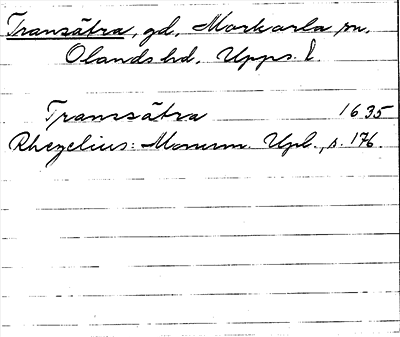 Transätra, gd, Morkarla sn.
Olands hd. Upps. l.
Transsätra 1635
Rhezelius: Monum. Upl., s. 176.